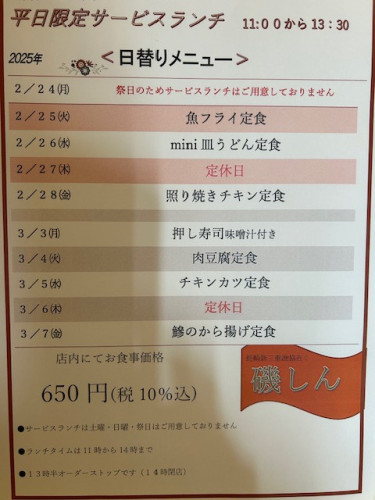 平日限定サービスランチ 11:00から13:30
2025年 <日替りメニュー>
2/24㈪ 祭日のためサービスランチはご用意しておりません
2/25㈫ 魚フライ定食
2/26㈬ mini皿うどん定食
2/27㈭ 定休日
2/28㈮ 照り焼きチキン定食
3/3㈪ 押し寿司味噌汁付き
3/4㈫ 肉豆腐定食
3/5㈬ チキンカツ定食
3/6㈭ 定休日
3/7㈮ 鯵のから揚げ定食
店内にてお食事価格
650円(税10%込)
磯しん
●サービスランチは土曜・日曜・祭日はご用意しておりません
●ランチタイムは11時から14時まで
●13時半オーダーストップです(14時閉店)